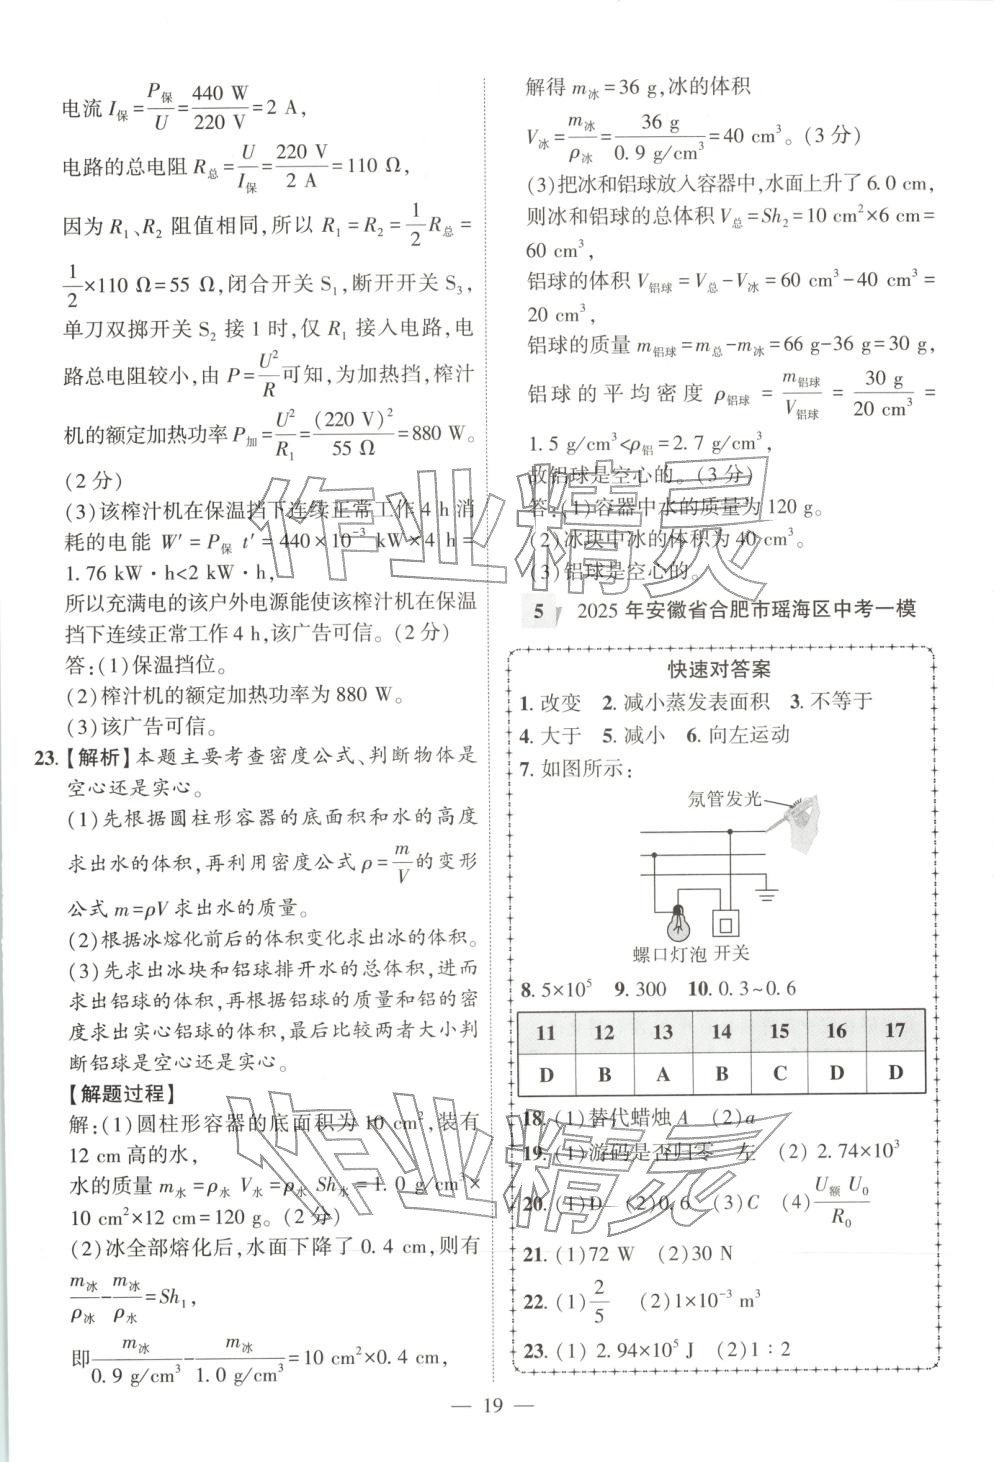 电流 I保=P保/U=440 W/220 V=2 A,
电路的总电阻 R总=U/I保=220 V/2 A=110 Ω,
因为 R₁、R₂ 阻值相同,所以 R₁=R₂=1/2R总=
1/2×110 Ω=55 Ω,闭合开关 S₁,断开开关 S₃,
单刀双掷开关 S₂ 接 1 时,仅 R₁ 接入电路,电
路总电阻较小,由 P=U²/R可知,为加热挡,榨汁
机的额定加热功率 P加=U²/R₁=(220 V)²/55 Ω=880 W。
(2分)
(3)该榨汁机在保温挡下连续正常工作 4 h 消
耗的电能 W′=P保 t′=440×10⁻³ kW×4 h=
1.76 kW·h<2 kW·h,
所以充满电的该户外电源能使该榨汁机在保温
挡下连续正常工作 4 h,该广告可信。(2分)
答:(1)保温挡位。
(2)榨汁机的额定加热功率为 880 W。
(3)该广告可信。
23.【解析】本题主要考查密度公式、判断物体是
空心还是实心。
(1)先根据圆柱形容器的底面积和水的高度
求出水的体积,再利用密度公式 ρ=m/V的变形
公式 m=ρV 求出水的质量。
(2)根据冰熔化前后的体积变化求出冰的体积。
(3)先求出冰块和铝球排开水的总体积,进而
求出铝球的体积,再根据铝球的质量和铝的密
度求出实心铝球的体积,最后比较两者大小判
断铝球是空心还是实心。
【解题过程】
解:(1)圆柱形容器的底面积为 10 cm²,装有
12 cm 高的水,
水的质量 m水=ρ水 V水=ρ水 Sh水=1.0 g/cm³×
10 cm²×12 cm=120 g。(2分)
(2)冰全部熔化后,水面下降了 0.4 cm,则有
m冰/ρ冰-m冰/ρ水=Sh₁,
即m冰/0.9 g/cm³-m冰/1.0 g/cm³=10 cm²×0.4 cm,
解得 m冰=36 g,冰的体积
V冰=m冰/ρ冰=36 g/0.9 g/cm³=40 cm³。(3分)
(3)把冰和铝球放入容器中,水面上升了 6.0 cm,
则冰和铝球的总体积 V总=Sh₂=10 cm²×6 cm=
60 cm³,
铝球的体积 V铝球=V总-V冰=60 cm³-40 cm³=
20 cm³,
铝球的质量 m铝球=m总-m冰=66 g-36 g=30 g,
铝球的平均密度 ρ铝球=m铝球/V铝球=30 g/20 cm³=
1.5 g/cm³<ρ铝=2.7 g/cm³,
故铝球是空心的。(3分)
答:(1)容器中水的质量为 120 g。
(2)冰块中冰的体积为 40 cm³。
(3)铝球是空心的。
5 2025 年安徽省合肥市瑶海区中考一模
快速对答案
1. 改变 2. 减小蒸发表面积 3. 不等于
4. 大于 5. 减小 6. 向左运动
7. 如图所示:
氖管发光
螺口灯泡 开关
8. 5×10⁵ 9. 300 10. 0.3~0.6
11 12 13 14 15 16 17
D B A B C D D
18. (1)替代蜡烛 A (2)a
19. (1)游码是否归零 左 (2) 2.74×10³
20. (1)D (2)0.6 (3)C (4)U额 U₀/R₀
21. (1)72 W (2)30 N
22. (1)2/5 (2)1×10⁻³ m³
23. (1) 2.94×10⁵ J (2)1∶2
— 19 —
作业精灵
作业精灵